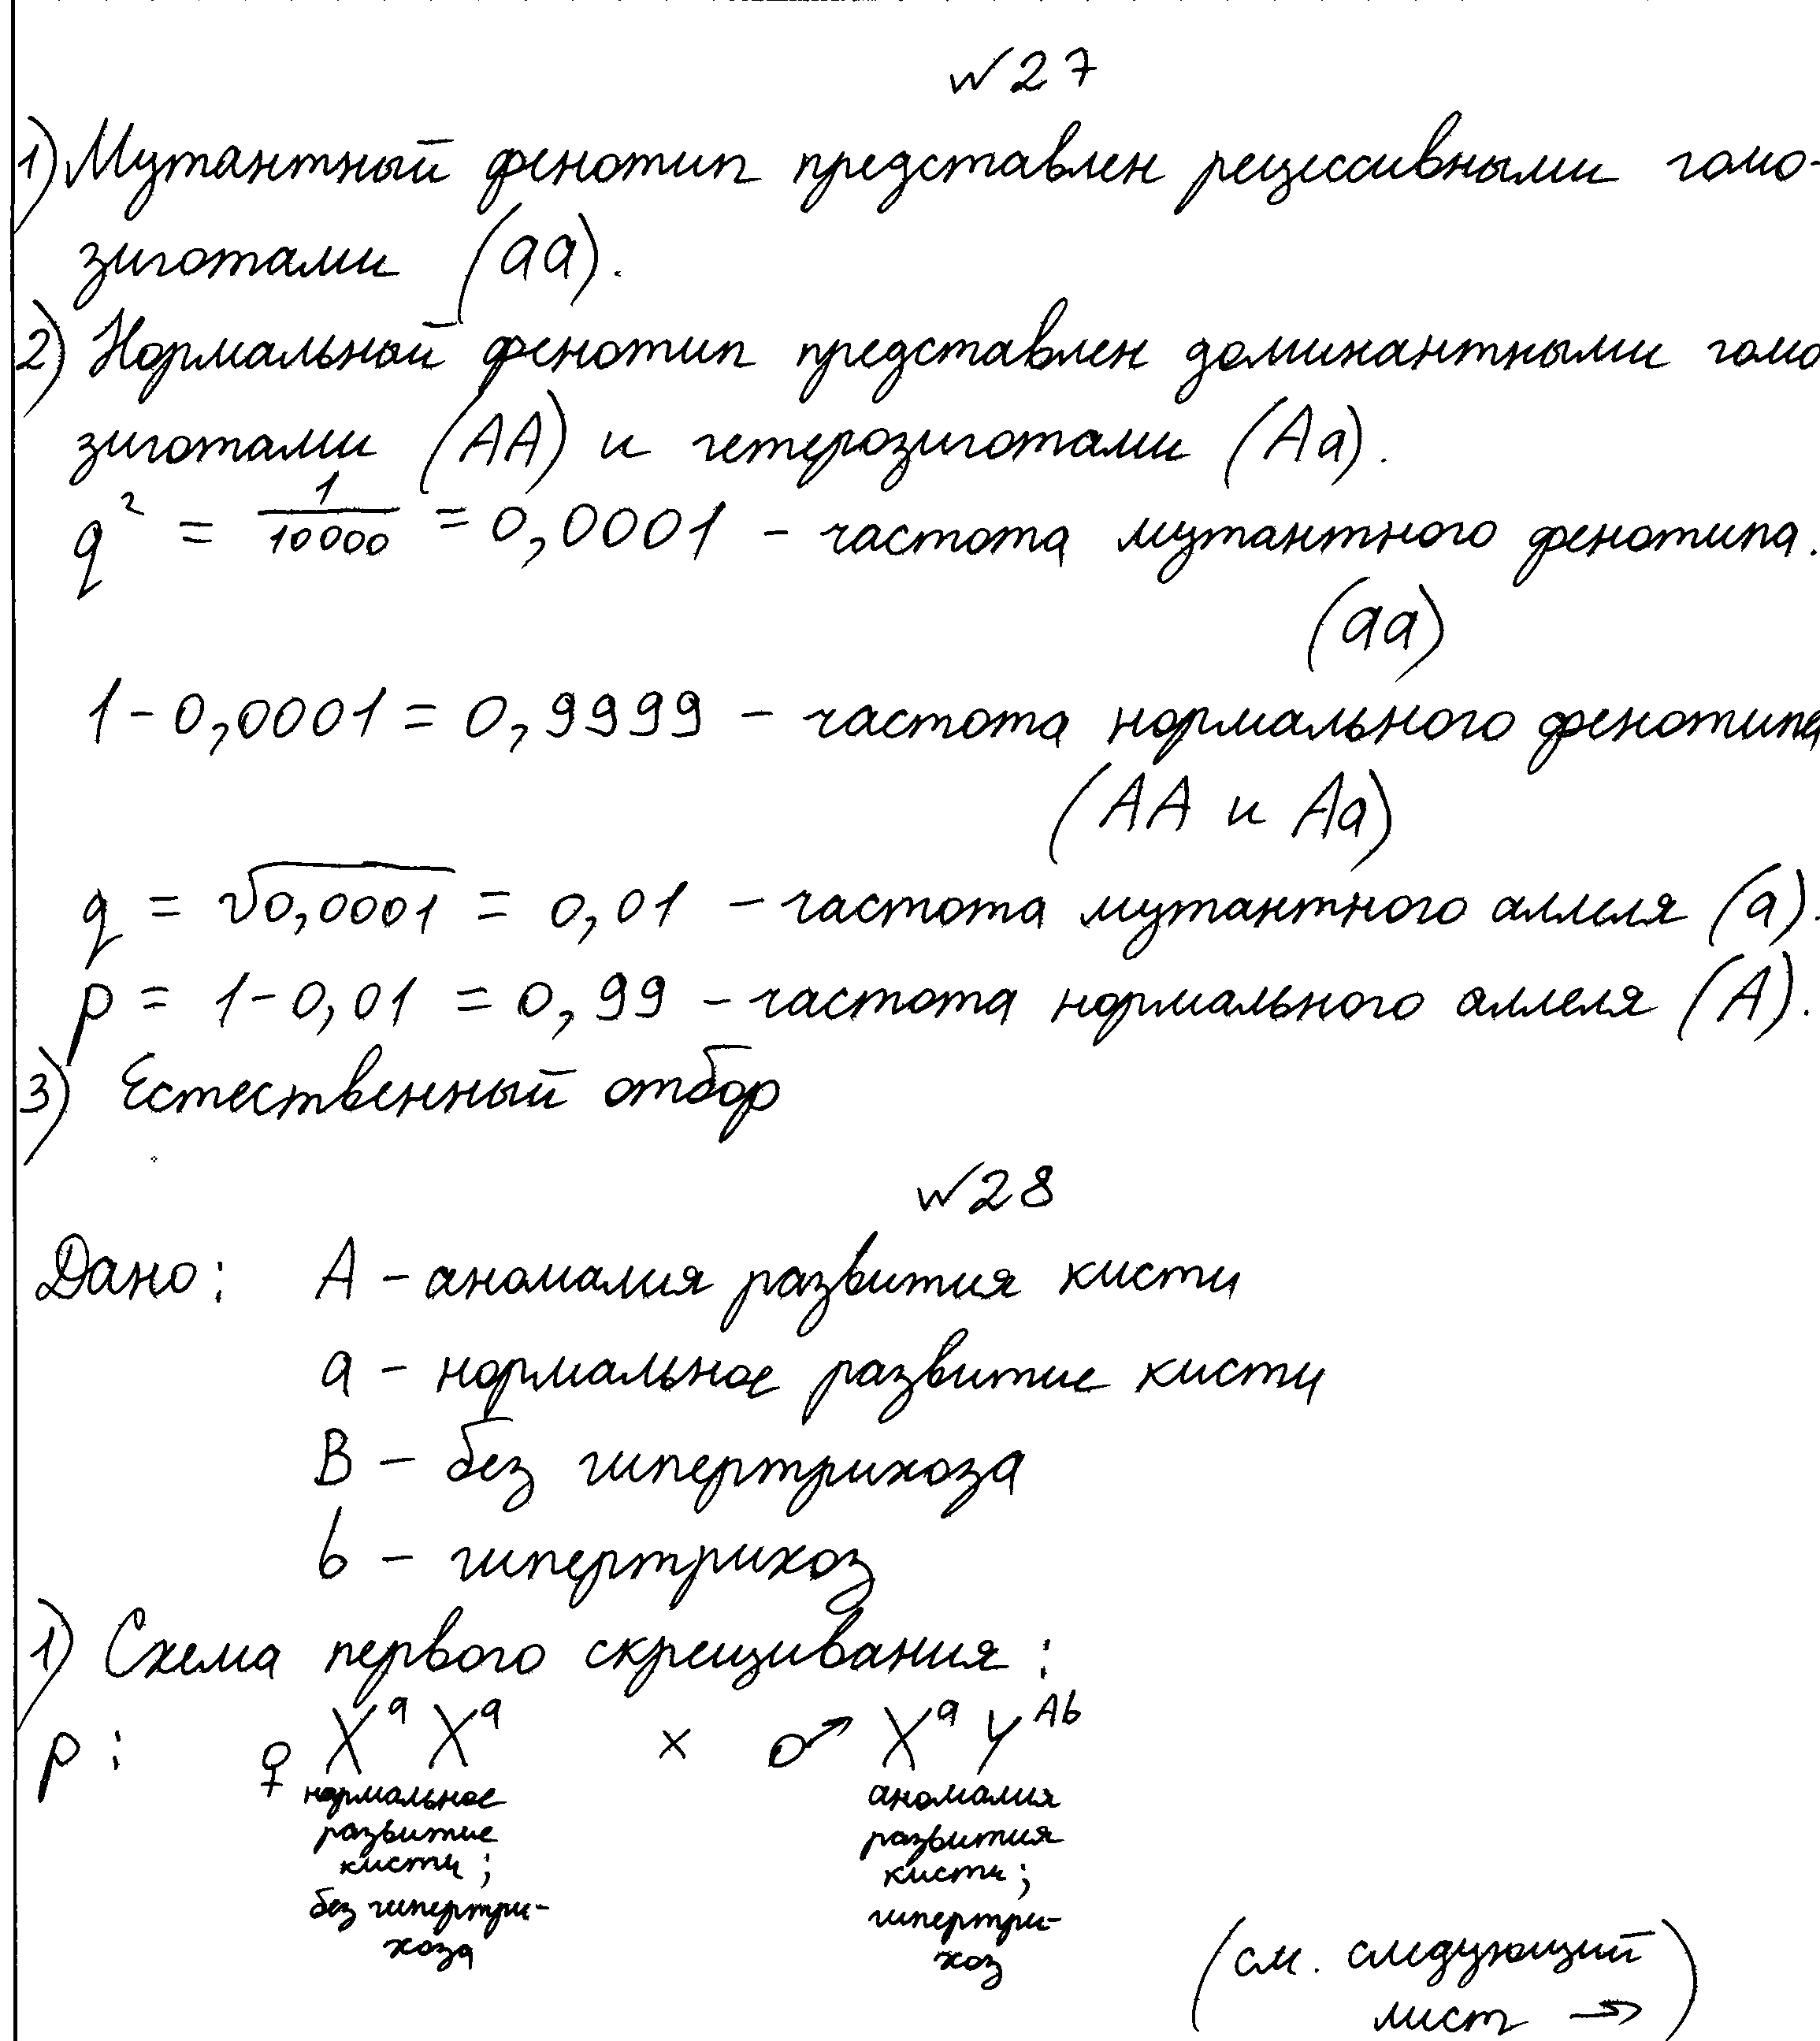 №27
1) Мутантный фенотип представлен рецессивными гомо-
зиготами (аа).
2) Нормальный фенотип представлен доминантными гомо
зиготами (АА) и гетерозиготами (Аа).
q² = 1/10000 = 0,0001 – частота мутантного фенотипа.
(аа)
1-0,0001 = 0,9999 – частота нормального фенотипа
(АА и Аа)
q = √0,0001 = 0,01 – частота мутантного аллеля (а).
p = 1-0,01 = 0,99 – частота нормального аллеля (А).
3) Естественный отбор
№28
Дано: А – аномалия развития кисти
а – нормальное развитие кисти
В – без гипертрихоза
b – гипертрихоз
1) Схема первого скрещивания:
р: ♀ XᵃXᵃ × ♂ XᵃYᴬᵇ
нормальное аномалия
развитие развития
кисти; кисти;
без гипертри- гипертри-
хоза хоз
(см. следующий
лист →)